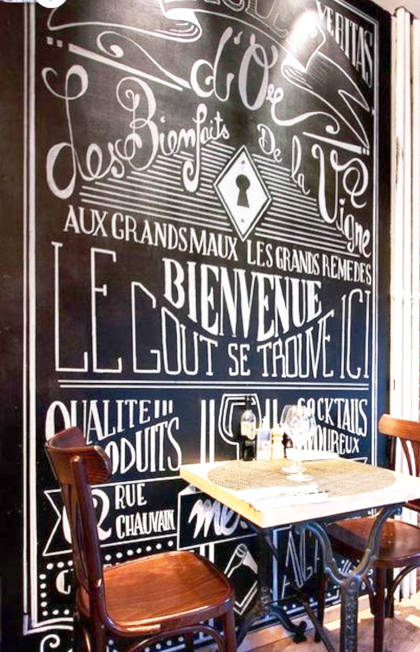 VERITAS
d'Or
Les Bienfaits De la Vigne
AUX GRANDS MAUX LES GRANDS REMEDES
BIENVENUE
LE GOUT SE TROUVE ICI
QUALITE
COCKTAILS
RUE
CHAUVAIN